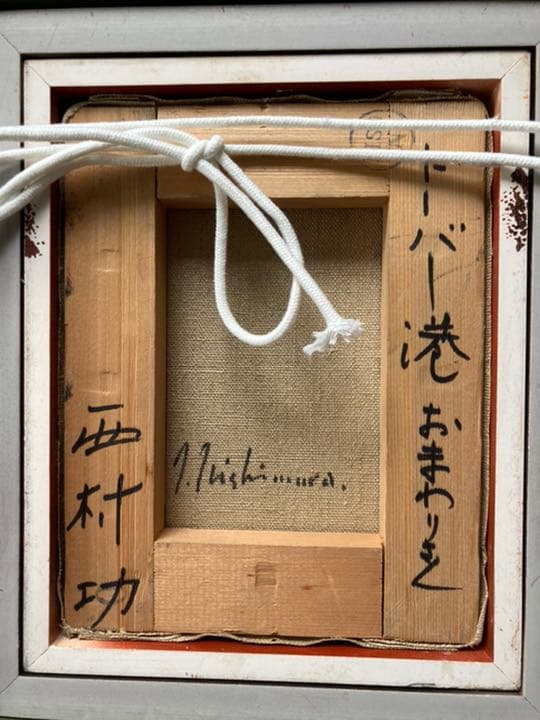 ドーバー港 おまわりさん
西村 功
I. Nishimura.